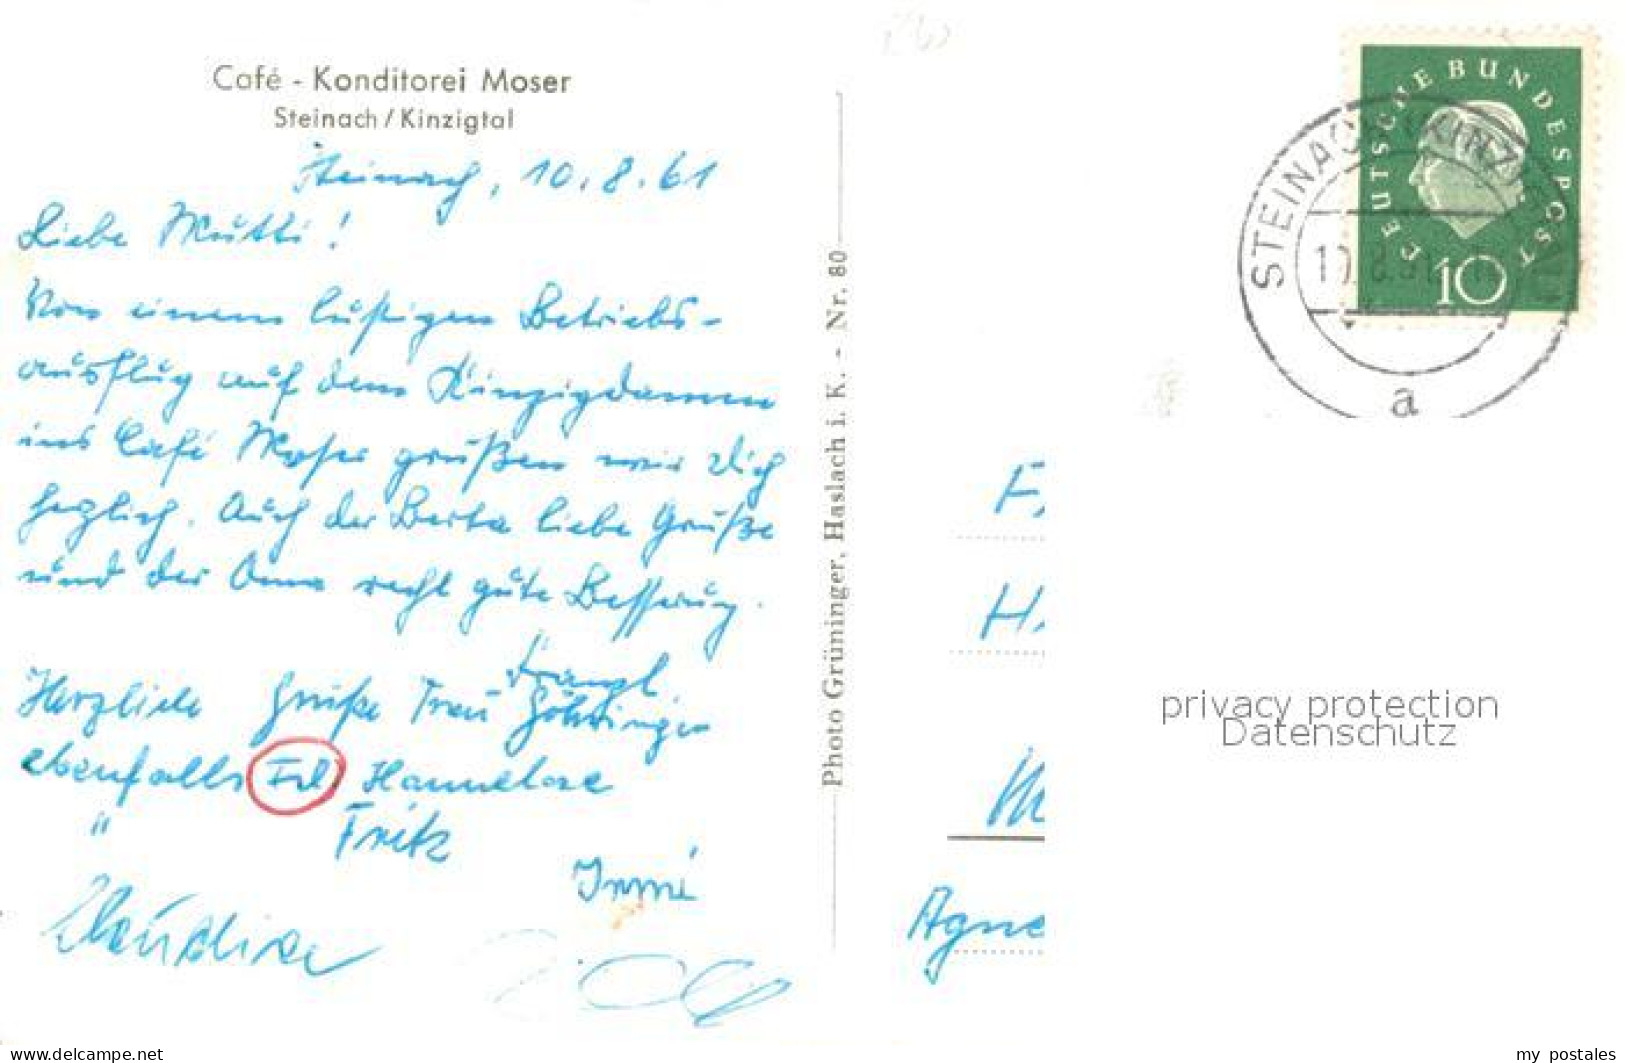 Café - Konditorei Moser
Steinach / Kinzigtal
Steinach, 10.8.61
Liebe Mutti!
Von einem lustigen Betriebs-
ausflug auf dem Kinzigdamm
ins Café Moser grüßen wir Dich
herzlich. Auch der Berta liebe Grüße
und der Oma recht gute Besserung.
Herzliche Grüße Frau
ebenfalls Frl. Hannelore
" Fritz
Irmi
Claudine
Photo Grüninger, Haslach i. K. - Nr. 80
DEUTSCHE BUNDESPOST
10
STEINACH (KINZIGTAL)
a
F
H
M
Agne
privacy protection
Datenschutz
www.delcampe.net
my_postales